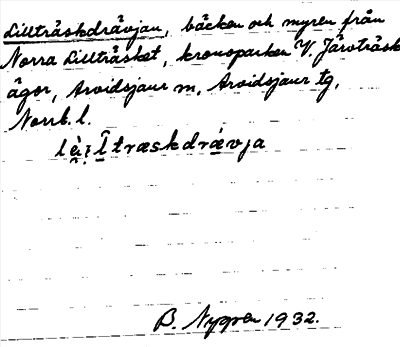 Lillträskdrävjan, bäcken och myren från
Norra Lillträsket, kronoparken V. Järvträsk
ägor, Arvidsjaur sn, Arvidsjaur tg,
Norrb. l.
B. Nygren 1932.